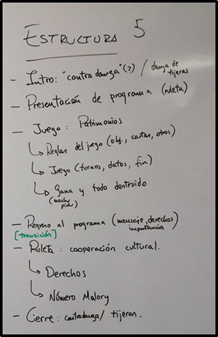 ESTRUCTURA 5
- Intro: "contradanza" (?) / danza de
tijeras
- Presentación de programa (ndeta)
- Juego: Patrimonios
↳ Reglas del juego (obj, cartas, otros)
↳ Juego (turnos, datos, fin)
↳ Gana y todo destruido
(Machu
Picchu)
- Regreso al programa (mensaje, derechos
importancia)
[transición]
- Ruleta: cooperación cultural.
↳ Derechos
↳ Número Malory
- Cierre: contradanza / tijeras.